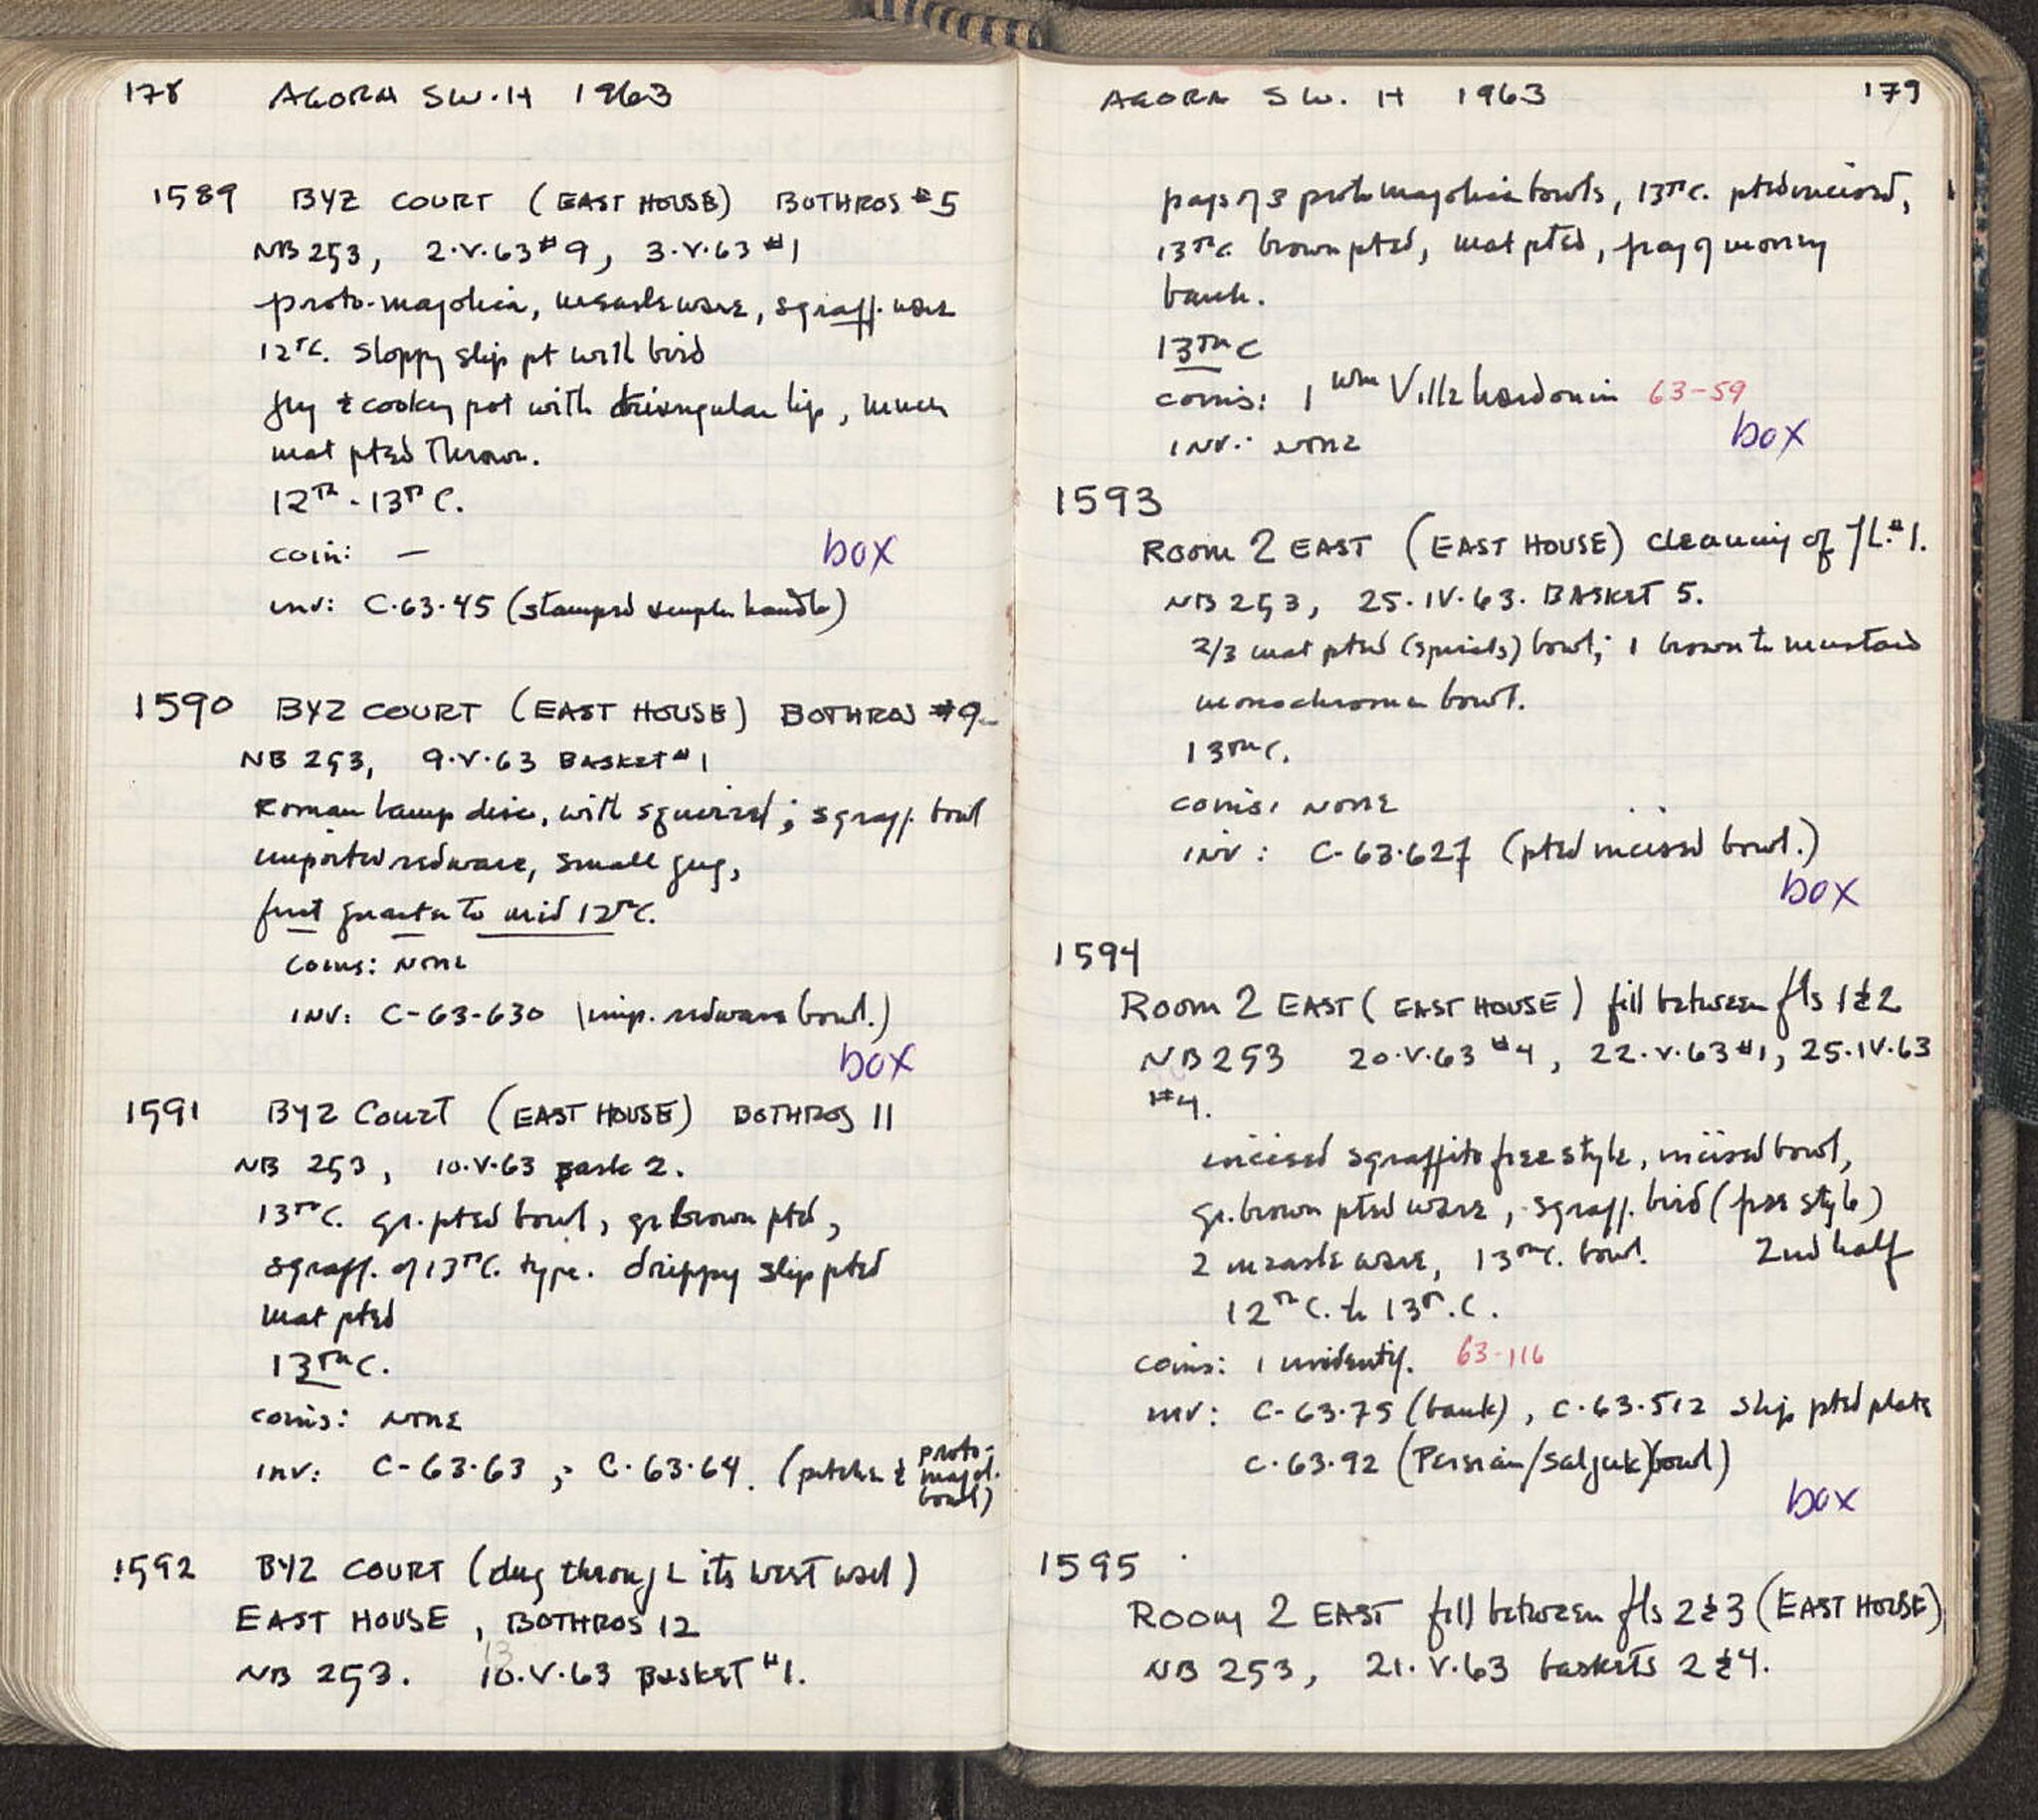 178 AGORA SW. H 1963
1589 BYZ COURT (EAST HOUSE) BOTHROS #5
NB 253, 2.V.63 #9, 3.V.63 #1
proto-majolica, measleware, sgraff. ware
12th C. sloppy slip pt with bird
jug & cooking pot with triangular lip, much
mat pted thrown.
12th - 13th C.
coin: — box
inv: C.63.45 (stamped handle)
1590 BYZ COURT (EAST HOUSE) BOTHROS #9
NB 253, 9.V.63 BASKET #1
Roman lamp disc, with squirrel; sgraff. bowl
imported redware, small jug,
first quarter to mid 12th C.
coins: NONE
INV: C-63-630 (imp. redware bowl.)
box
1591 BYZ COURT (EAST HOUSE) BOTHROS 11
NB 253, 10.V.63 bask 2.
13th C. gr. pted bowl, gr brown pted,
sgraff. of 13th C. type. drippy slip pted
mat pted
13th C.
coins: NONE
inv: C-63-63; C.63.64. (pitcher & proto-majol. bowl)
1592 BYZ COURT (dug through its west wall)
EAST HOUSE, BOTHROS 12
13
NB 253. 10.V.63 BASKET #1.
AGORA SW. H 1963 179
frags of 3 proto majolica bowls, 13th C. pted incised,
13th C. brown pted, mat pted, frag of money
bank.
13th C
coins: 1 Wm Villehardouin 63-59
INV.: NONE box
1593
ROOM 2 EAST (EAST HOUSE) cleaning of fl. #1.
NB 253, 25.IV.63. BASKET 5.
2/3 mat pted (spirals) bowl; 1 brown to mustard
monochrome bowl.
13th C.
coins: NONE
inv: C-63.627 (pted incised bowl.)
box
1594
ROOM 2 EAST (EAST HOUSE) fill between fls 1 & 2
NB 253 20.V.63 #4, 22.V.63 #1, 25.IV.63
#4.
incised sgraffito free style, incised bowl,
gr. brown pted ware, sgraff. bird (free style)
2 measle ware, 13th C. bowl. 2nd half
12th C. to 13th. C.
coins: 1 unidentif. 63-116
inv: C-63.75 (bank), C.63.512 slip pted plate
C.63.92 (Persian/Saljuk) bowl)
box
1595
ROOM 2 EAST fill between fls 2 & 3 (EAST HOUSE)
NB 253, 21.V.63 baskets 2 & 4.